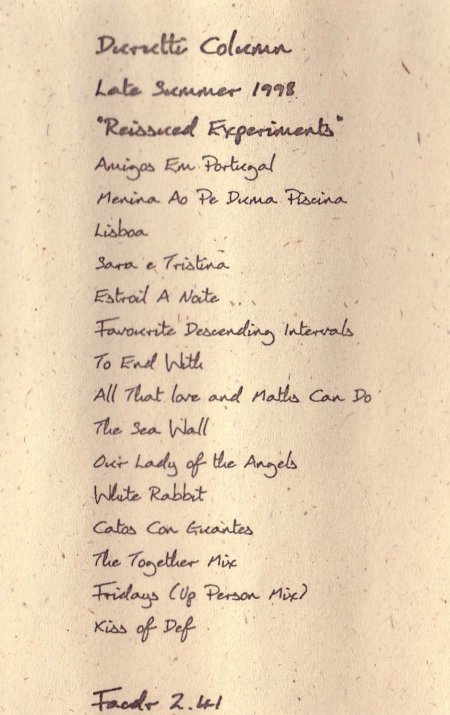 Durutti Column
Late Summer 1998
"Reissued Experiments"
Amigos Em Portugal
Menina Ao Pe Duma Piscina
Lisboa
Sara e Tristina
Estroil A Noite
Favourite Descending Intervals
To End With
All That love and Maths Can Do
The Sea Wall
Our Lady of the Angels
White Rabbit
Catos Con Guantes
The Together Mix
Fridays (Up Person Mix)
Kiss of Def
Facdr 2.41